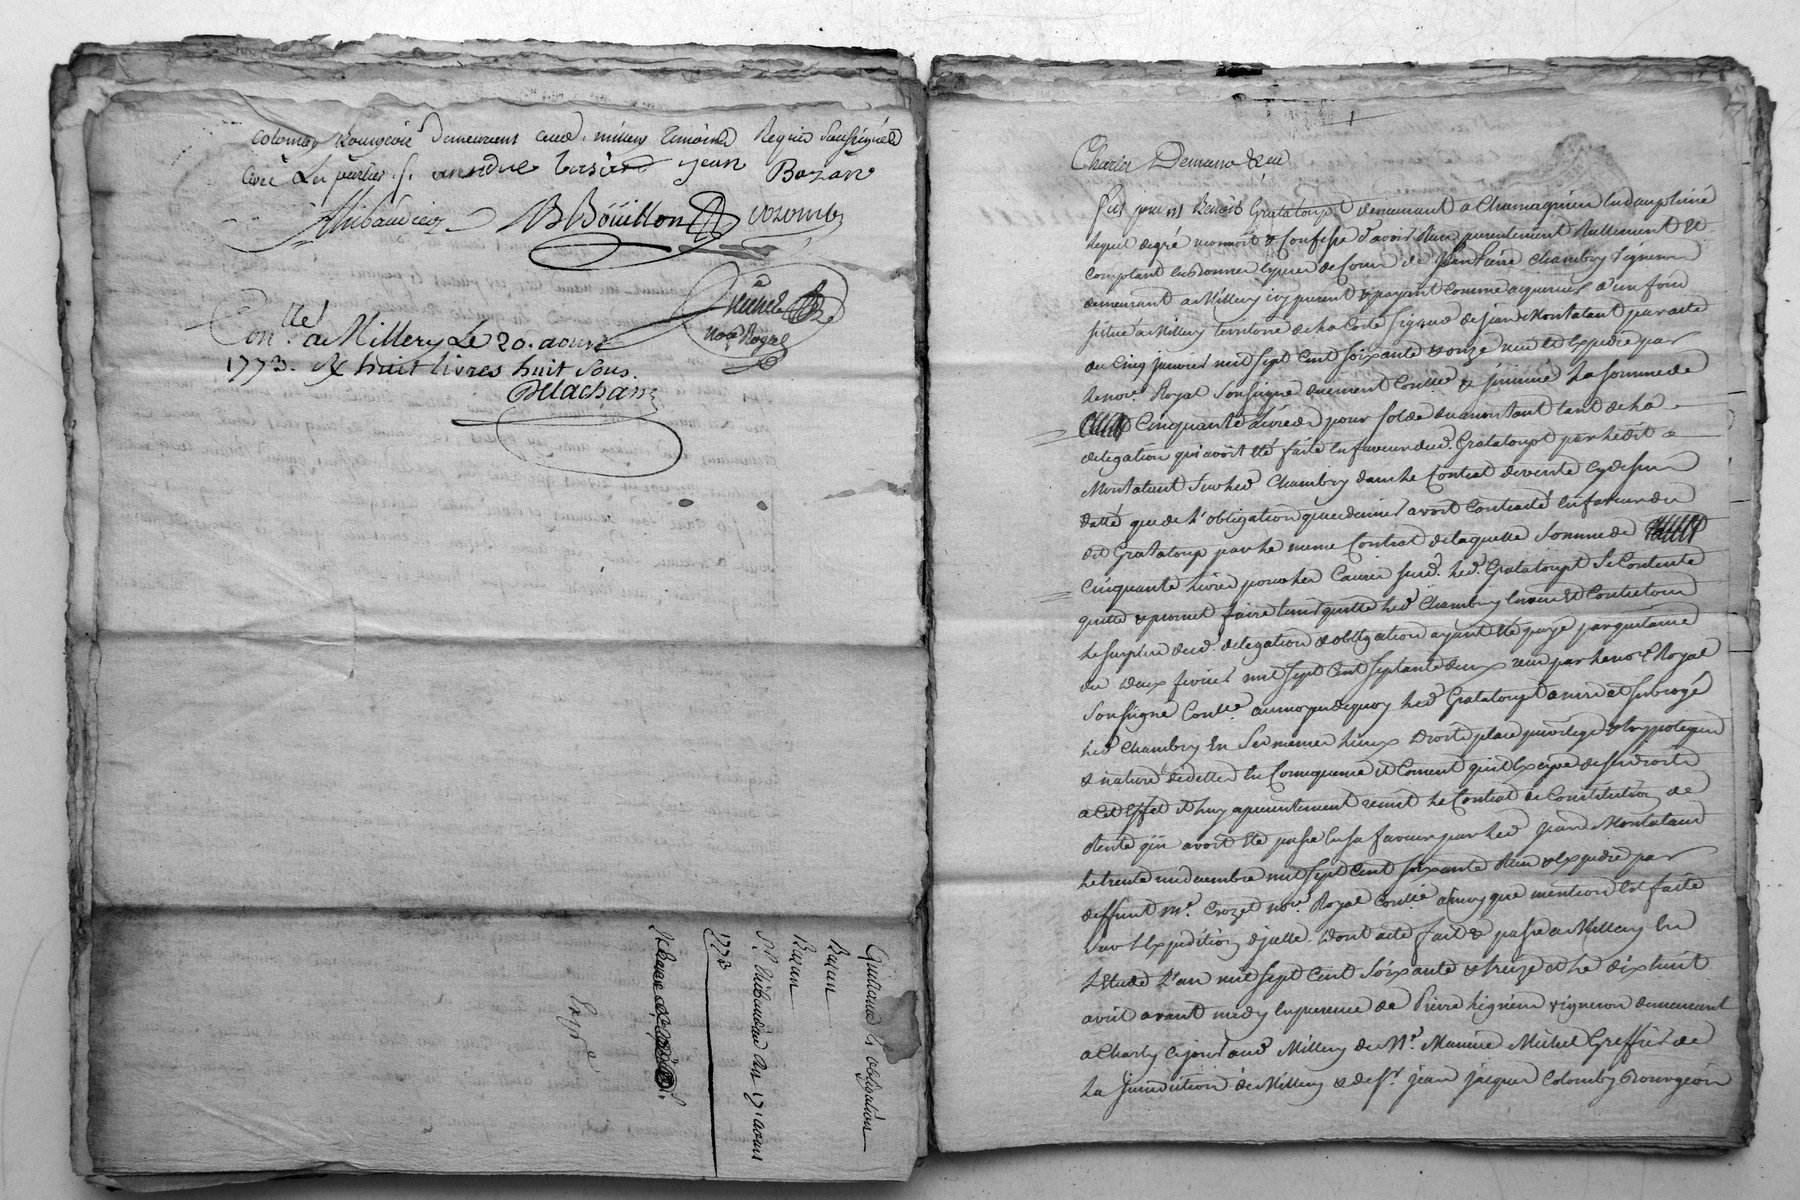 Colomby Bourgeois demeurans aud. millery temoins Requis soussignés
avec les parties ./. jean Bazan
Thibaudier BBoüillon Colomby
Michel
nore Royal
Conllé a Millery Le 20. aoust
1773. Rx huit livres huit sols.
Dellachan
Quittance & obligation
Bazan
Bazan
Sr. Thibaudier du 17. aoust
1773
Expé
Charles Demano &ca
fut présent Benoist Grataloupt demeurant a Chamagnieu en dauphiné
lequel de gré reconnoit & confesse d'avoir Reçu presentement Reellement &
comptant en bonnes especes de Cours de Jean Pierre Chambry vigneron
demeurant a Millery icy present & payant comme acquereur d'un fond
situé a Millery territoire de la Cote signé de Jean Montalant par acte
du Cinq janvier mil sept cent soixante & onze reçu & Expedié par
le nore. Royal soussigné duement Conllé & insinué La somme de
Cinquante livres pour solde du montant tant de la
delegation qui avoit été faite en faveur dud. Grataloupt par ledit
Montalant sur led. Chambry dans le Contrat de vente cy dessus
datté que de l'obligation que ce dernier avoit Contracté en faveur du
dit Grataloup par le meme Contrat de laquelle somme de
cinquante livres pour les Causes susd. led. Grataloupt se Contente
quitte & promet faire tenir quitte led. Chambry envers & Contre tous
le surplus desd. delegation & obligation ayant été payé par quittance
du deux fevrier mil sept cent septante deux reçu par le nore. Royal
soussigné Conllé. au moyen de quoy led. Grataloupt a mis et subrogé
led. Chambry En ses memes lieux Droits place privilege & hypoteques
& nature de dettes En Consequence Consent qu'il Excipe de ses droits
a Cet Effet il luy a presentement remis le Contrat de Constitution de
Rente qui avoit été passé en sa faveur par led. Jean Montalant
le trente un decembre mil sept cent soixante Reçu & Expedié par
deffunt me. Crozet nore. Royal Conllé ainsy que mention Est faite
sur l'Expedition d'jcelle. Dont acte fait & passé a Millery En
l'Etude l'an mil sept cent soixante & treize et le dix huit
avril avant midy En presence de Pierre vigneron demeurant
a Charly Ce jour aud. Millery de Me. Maurice Michel Greffier de
La jurisdiction de Millery & de sr. jean jacques Colomby Bourgeois